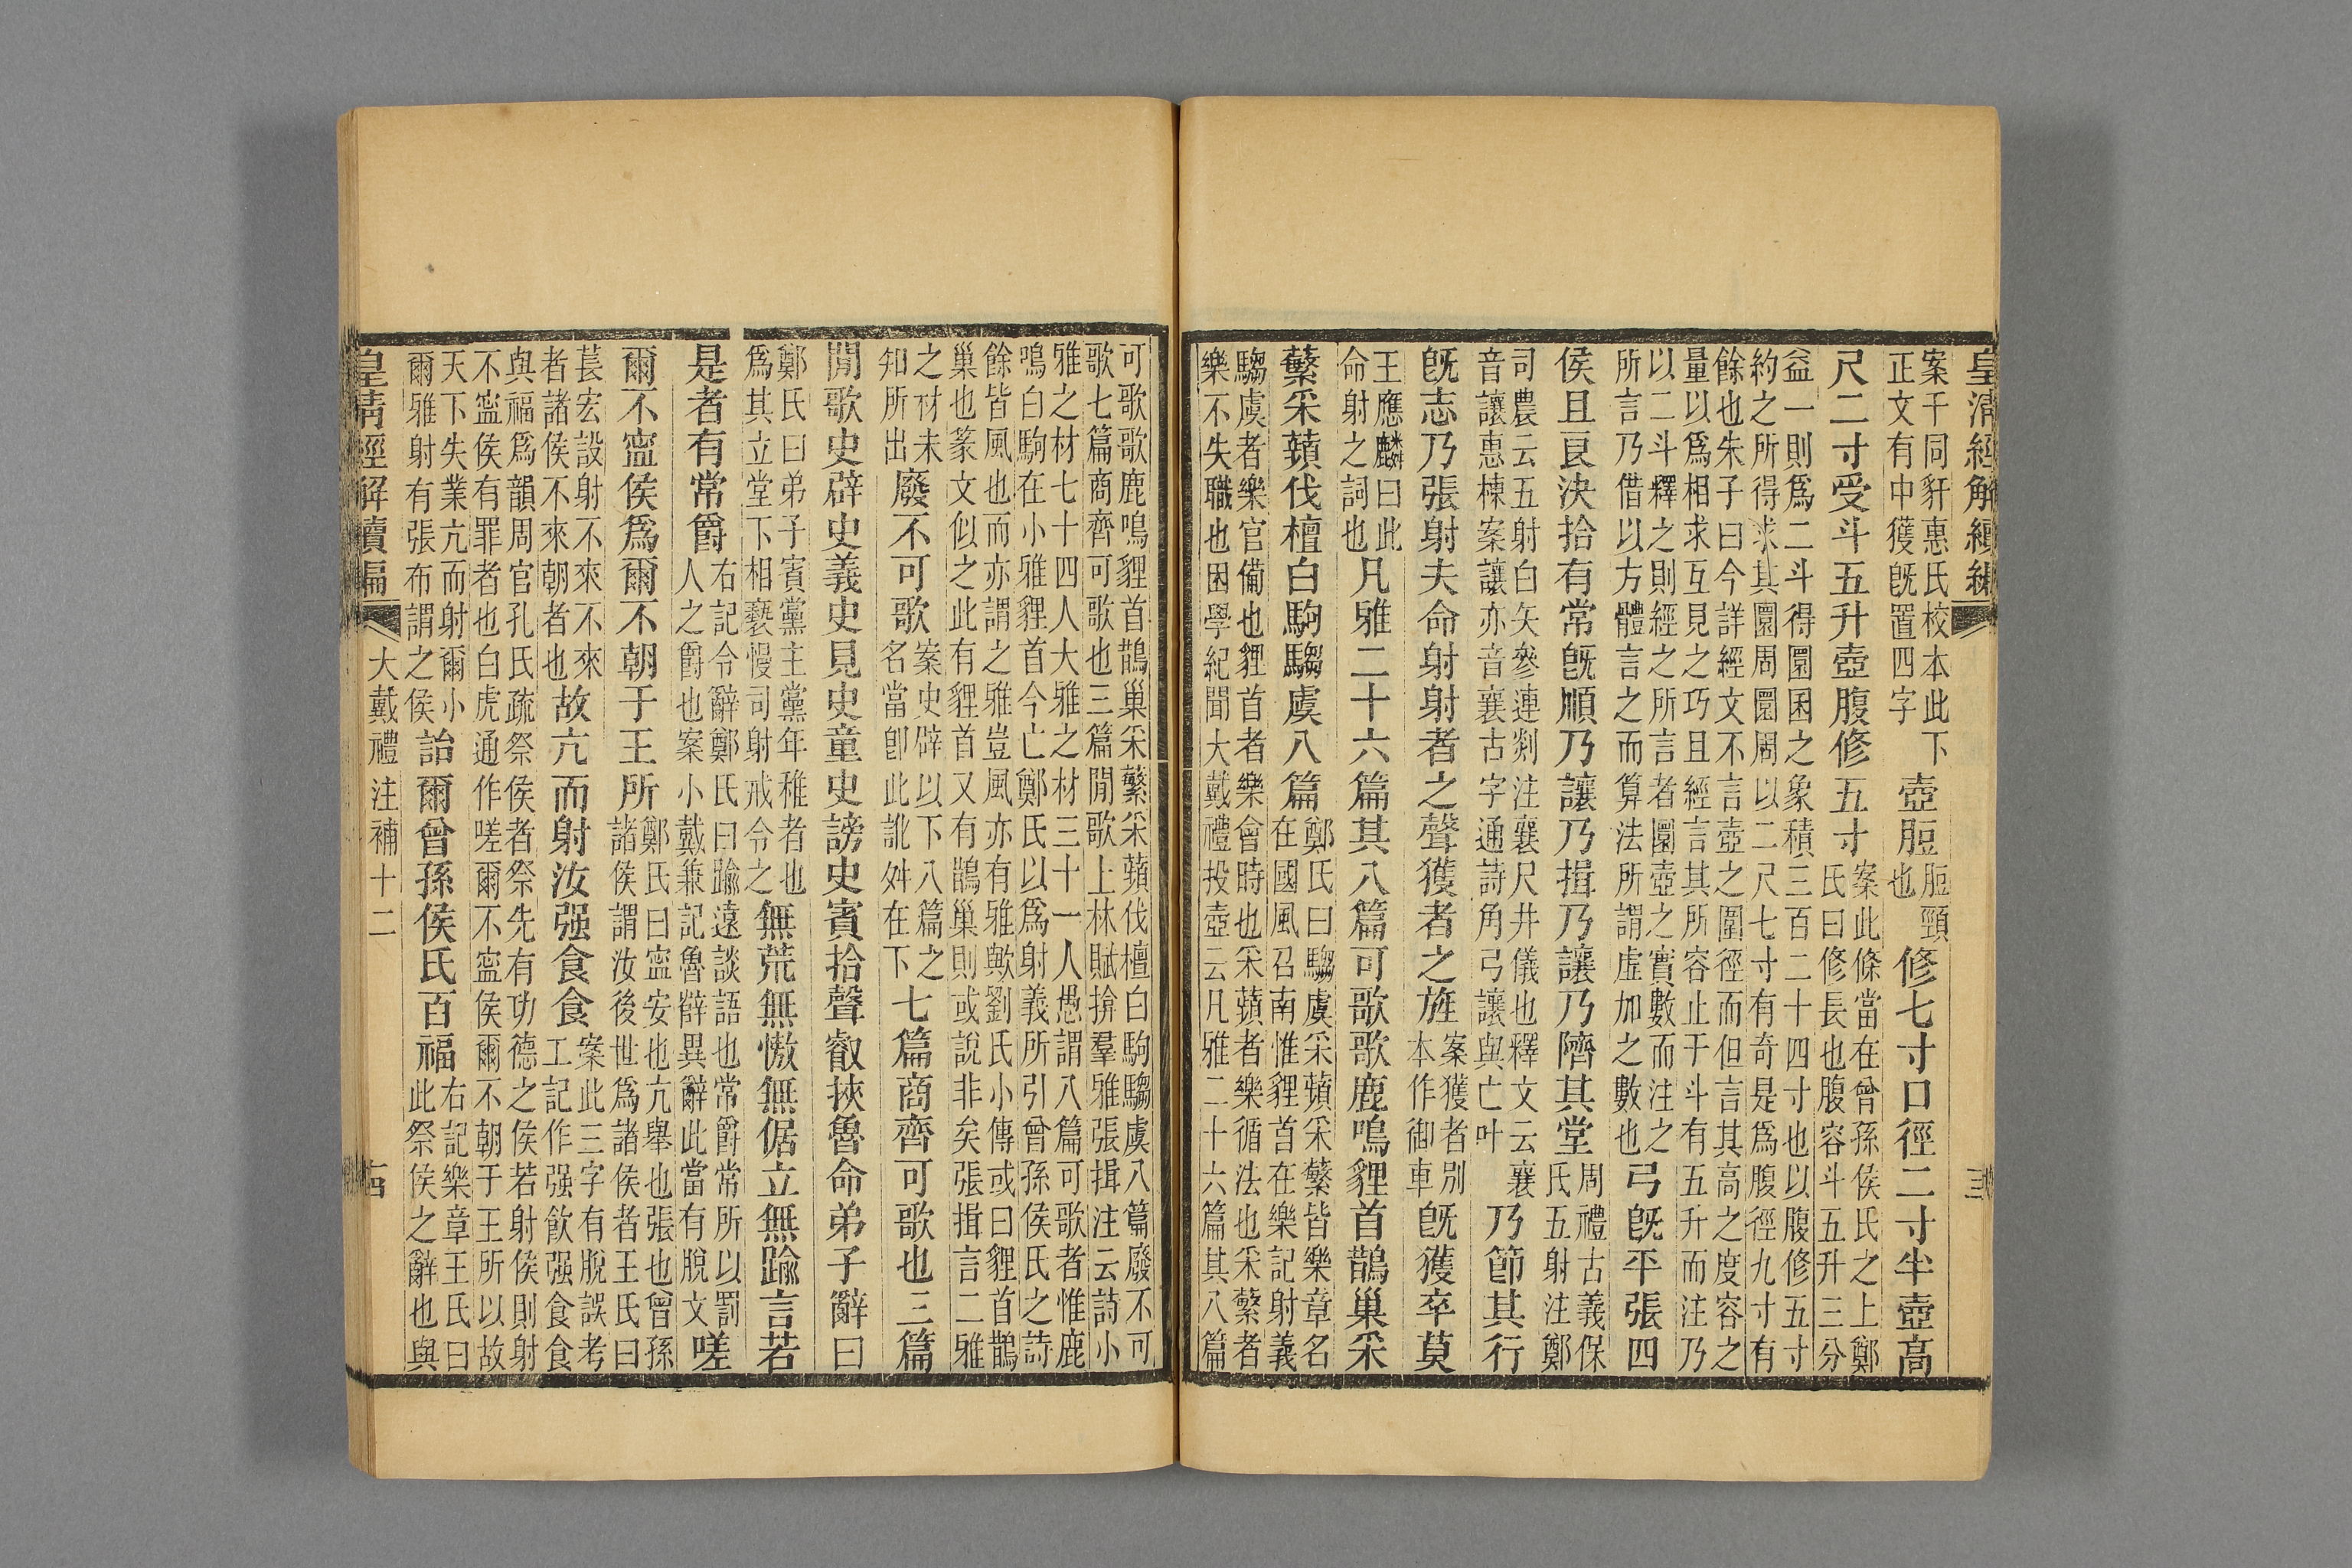 皇清經解續編
案干同豻惠氏校本此下
正文有中獲旣置四字
壺脰
脰頸
也
修七寸口徑二寸半壺高
尺二寸受斗五升壺腹修五寸
案此條當在曾孫侯氏之上鄭
氏曰修長也腹容斗五升三分
益一則爲二斗得圜囷之象積三百二十四寸也以腹修五寸
約之所得求其圜周圜周以二尺七寸有奇是爲腹徑九寸有
餘也朱子曰今詳經文不言壺之圍徑而但言其高之度容之
量以爲相求互見之巧且經言其所容止于斗有五升而注乃
以二斗釋之則經之所言者圜壺之實數而注之
所言乃借以方體言之而算法所謂虛加之數也
弓旣平張四
侯且良決拾有常旣順乃讓乃揖乃讓乃隮其堂
周禮古義保
氏五射注鄭
司農云五射白矢參連剡注襄尺井儀也釋文云襄
音讓惠棟案讓亦音襄古字通詩角弓讓與亡叶
乃節其行
旣志乃張射夫命射射者之聲獲者之旌
案獲者別
本作御車
旣獲卒莫
王應麟曰此
命射之詞也
凡雅二十六篇其八篇可歌歌鹿鳴貍首鵲巢采
蘩采蘋伐檀白駒騶虞八篇
鄭氏曰騶虞采蘋采蘩皆樂章名
在國風召南惟貍首在樂記射義
騶虞者樂官僃也貍首者樂會時也采蘋者樂循法也采蘩者
樂不失職也困學紀聞大戴禮投壺云凡雅二十六篇其八篇
可歌歌鹿鳴貍首鵲巢采蘩采蘋伐檀白駒騶虞八篇廢不可
歌七篇商齊可歌也三篇閒歌上林賦揜羣雅張揖注云詩小
雅之材七十四人大雅之材三十一人愚謂八篇可歌者惟鹿
鳴白駒在小雅貍首今亡鄭氏以爲射義所引曾孫侯氏之詩
餘皆風也而亦謂之雅豈風亦有雅歟劉氏小傳或曰貍首鵲
巢也篆文似之此有貍首又有鵲巢則或說非矣張揖言二雅
之材未
知所出
廢不可歌
案史辟以下八篇之
名當卽此訛舛在下
七篇商齊可歌也三篇
閒歌史辟史義史見史童史謗史賓拾聲叡挾魯命弟子辭曰
鄭氏曰弟子賓黨主黨年稚者也
爲其立堂下相褻慢司射戒令之
無荒無慠無倨立無踰言若
是者有常爵
右記令辭鄭氏曰踰遠談語也常爵常所以罰
人之爵也案小戴兼記魯辥異辭此當有脫文
嗟
爾不寍侯爲爾不朝于王所
鄭氏曰寍安也亢舉也張也曾孫
諸侯謂汝後世爲諸侯者王氏曰
萇宏設射不來不來
者諸侯不來朝者也
故亢而射汝强食食
案此三字有脫誤考
工記作强飮强食食
與福爲韻周官孔氏疏祭侯者祭先有功德之侯若射侯則射
不寍侯有罪者也白虎通作嗟爾不寍侯爾不朝于王所以故
天下失業亢而射爾小
爾雅射有張布謂之侯
詒爾曾孫侯氏百福
右記樂章王氏曰
此祭侯之辭也與
皇清經解續編
大戴禮注補十二